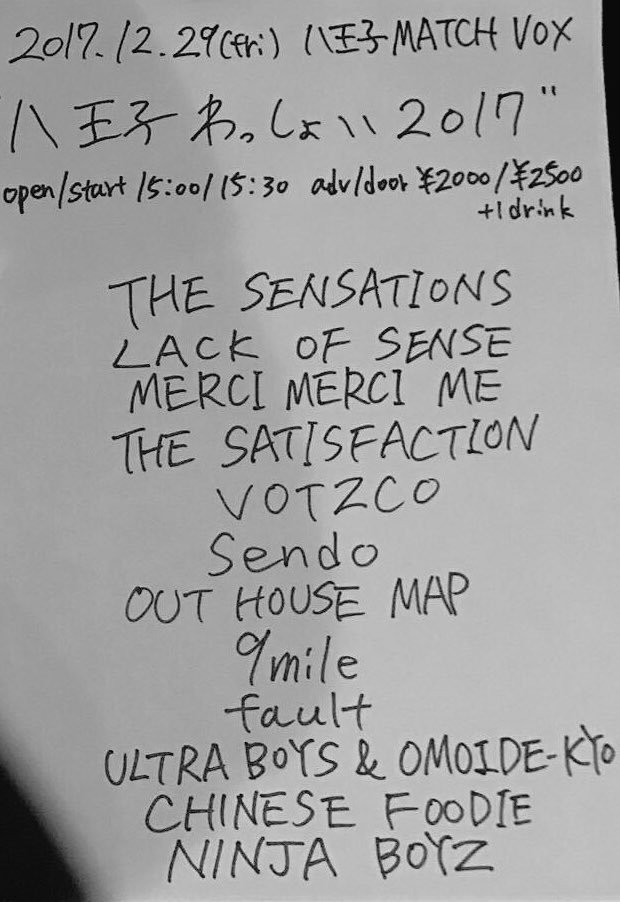 2017.12.29(fri) 八王子MATCH VOX
"八王子わっしょい2017"
open/start 15:00/15:30 adv/door ¥2000/¥2500
+1drink
THE SENSATIONS
LACK OF SENSE
MERCI MERCI ME
THE SATISFACTION
VOTZCO
Sendo
OUT HOUSE MAP
9mile
fault
ULTRA BOYS & OMOIDE-KYO
CHINESE FOODIE
NINJA BOYZ